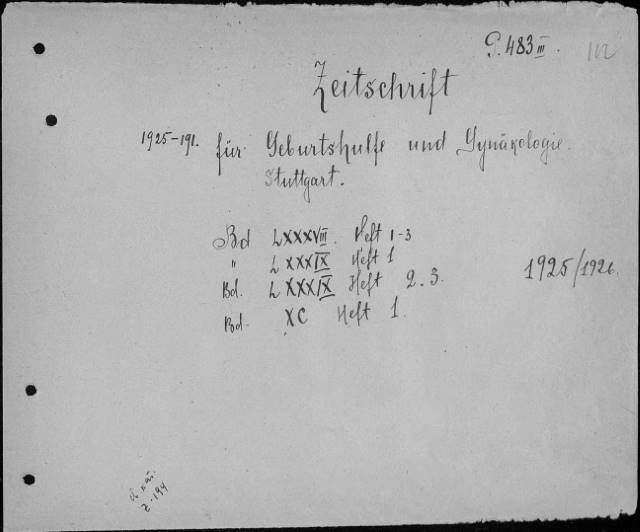 G. 483 III. 112
Zeitschrift
1925-191. für Geburtshulfe und Gynäkologie.
Stuttgart.
Bd LXXXVIII. Heft 1-3
" LXXXIX Heft 1
Bd. LXXXIX Heft 2. 3. 1925/1926.
Bd. XC Heft 1.
Z-194